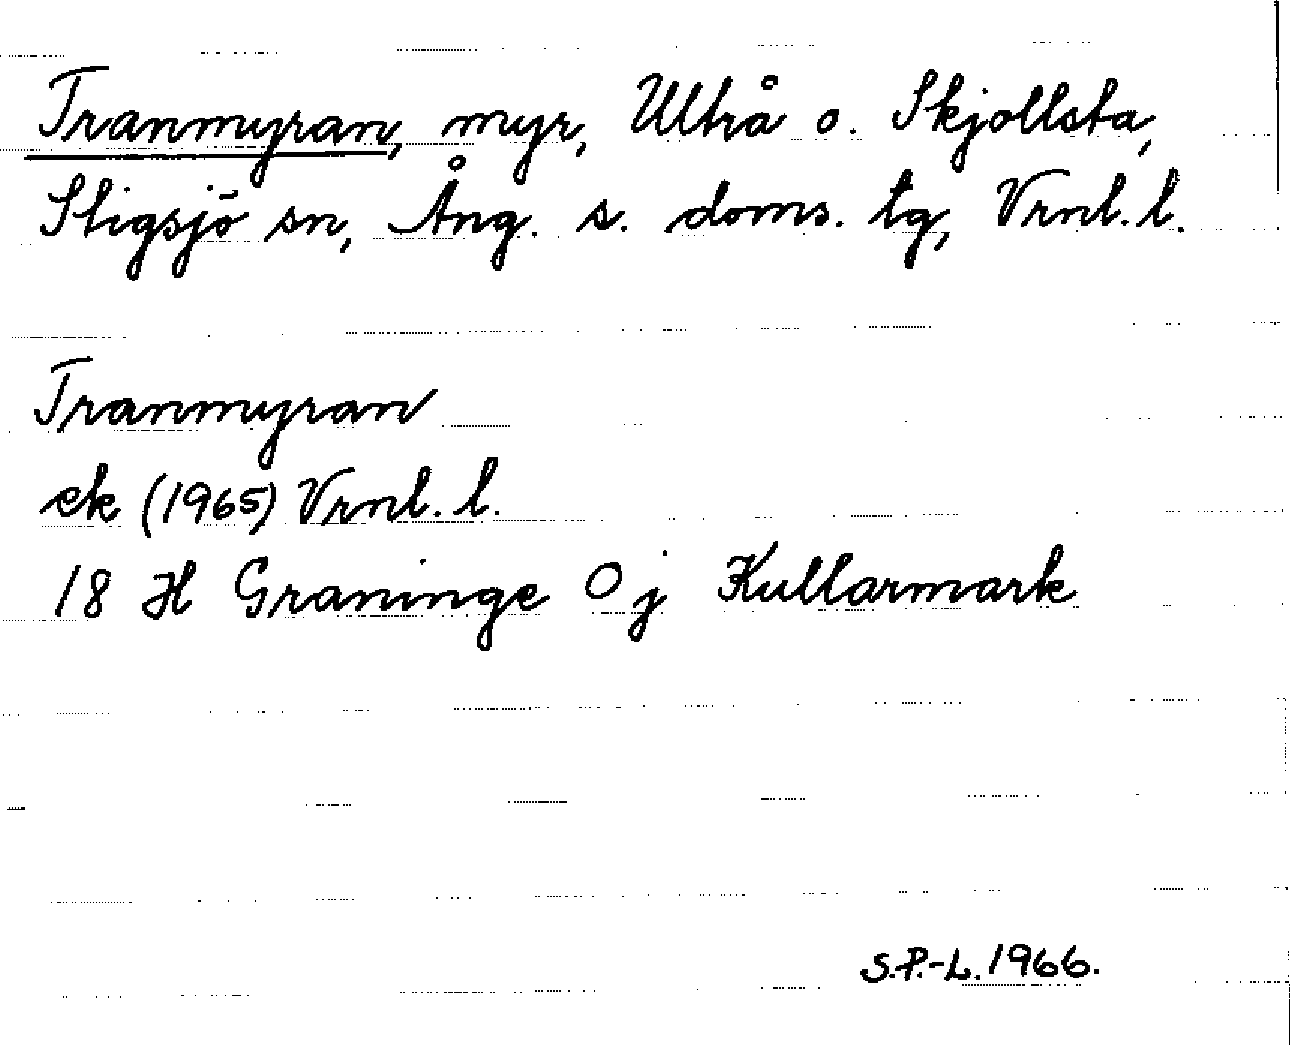 Tranmyran, myr, Ultrå o. Skjollsta,
Stigsjö sn, Ång. s. doms. tg, Vrnl. l.
Tranmyran
ek (1965) Vrnl. l.
18 H Graninge O j Kullarmark
S.P.-L. 1966.